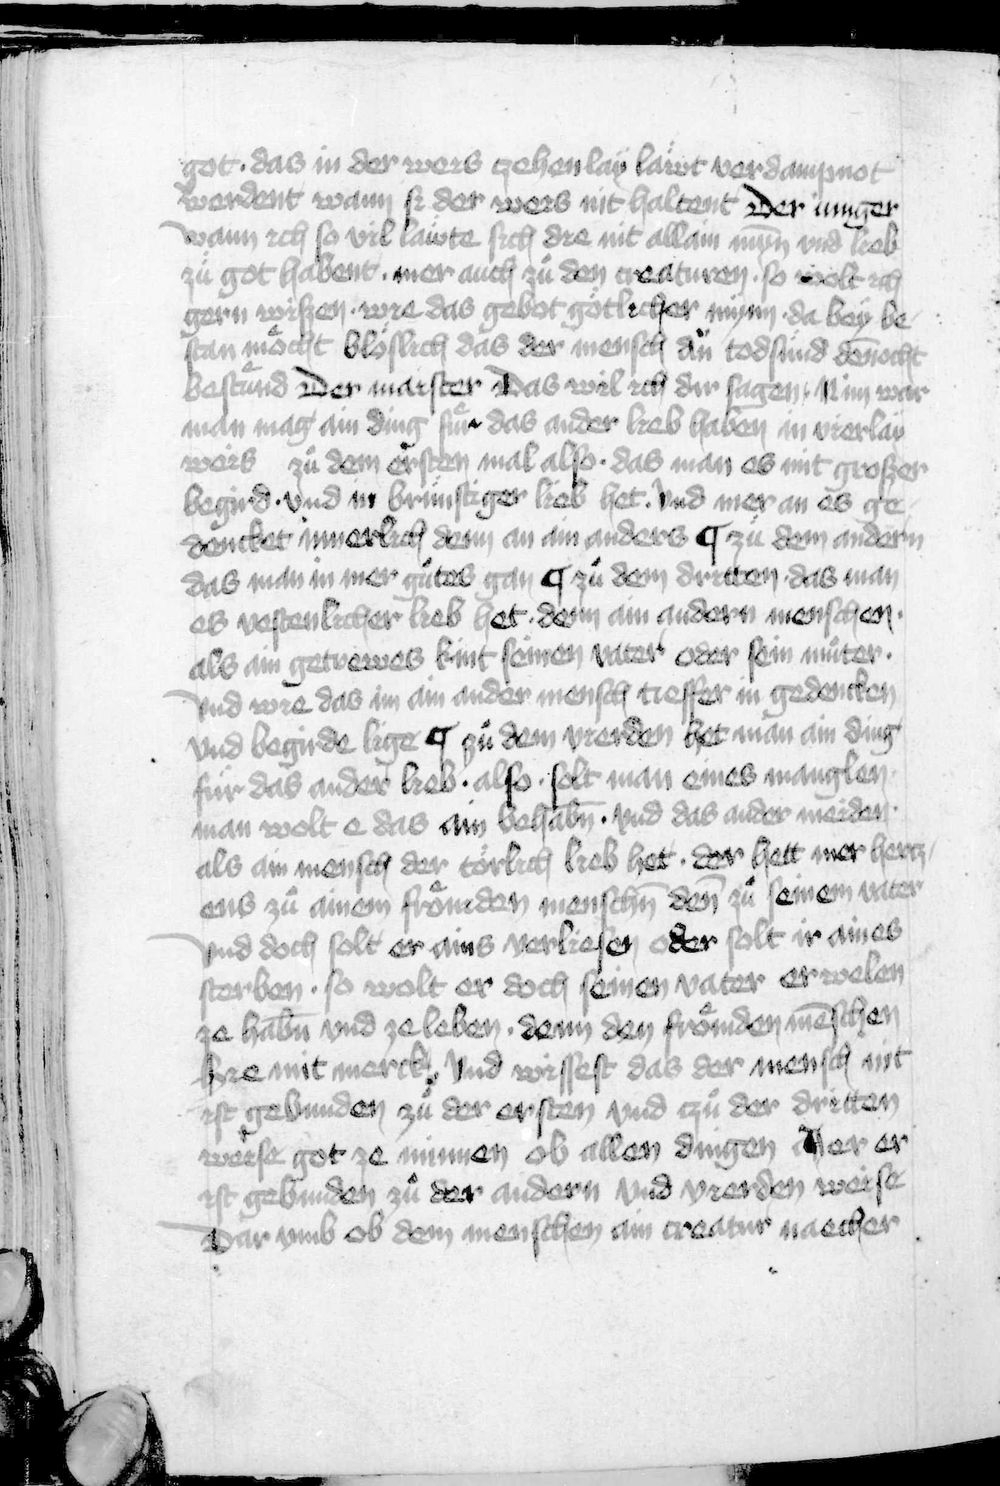 got · das in der weis zehenlaÿ läwt verdampnot
werdent wann si der weis nit haltent Der iunger
Wann ich so vil läwte sich die nit allain mȳn vnd lieb
zů got habent · mer auch zů den creaturen · so wolt ich
gern wißzen · wie das gebot götlicher mynn · da beÿ be
stan möcht blöslich das der mensch ân todsünd deñocht
bestůnd Der maister Das wil ich dir sagen · Nim war
man mag ain ding fůr das ander lieb haben in vierlaÿ
weis zů dem ersten mal also · das man es mit groszer
begird · vnd in brünstiger lieb het · Vnd mer an es ge
dencket innerlich denn an ain anders ¶ zů dem andern
das man im mer gůtes gan ¶ zů dem dritten · das man
es vestenlicher lieb het · denn ain andern menschen ·
als ain getrewes kint seinen vater oder sein můter ·
Vnd wie das im ain ander mensch tieffer in gedencken
vnd begirde lige ¶ zů dem vierden het man ain ding
für das ander lieb · also · solt man eines manglen
man wolt e das ain behabn̄ · Vnd das ander meiden ·
als ain mensch der törlich lieb het · der hett mer hertz
ens zů ainem frömden menschn̄ den̄ zů seinem vater
Vnd doch solt er ains verliesen oder solt ir aines
sterben · so wolt er doch seinen vater erwelen
ze habn̄ vnd ze leben · denn den frömden mēschen
hie mit merck Vnd wissest das der mensch nit
ist gebunden zů der ersten vnd czů der dritten
weise got ze minnen ob allen dingen Aber er
ist gebunden zů der andern vnd vierden weise
Dar vmb ob dem menschen ain creatur naecher